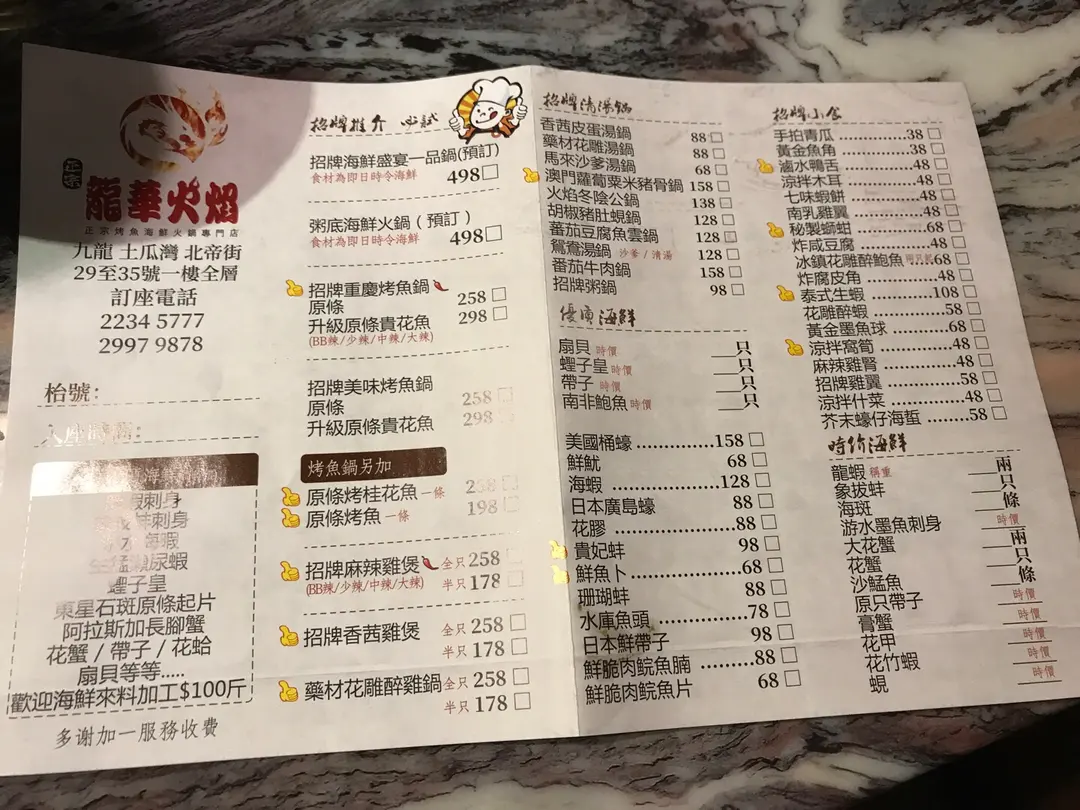 正宗
龍華火焰
正宗烤魚海鮮火鍋專門店
九龍 土瓜灣 北帝街
29至35號一樓全層
訂座電話
2234 5777
2997 9878
枱號:
入座時間:
刺身
刺身
尿蝦
蟶子皇
東星石斑原條起片
阿拉斯加長腳蟹
花蟹 / 帶子 / 花蛤
扇貝等等.....
歡迎海鮮來料加工$100斤
多谢加一服務收費
招牌推介 必試
招牌海鮮盛宴一品鍋(預訂)
食材為即日時令海鮮 498
粥底海鮮火鍋 ( 預訂 )
食材為即日時令海鮮 498
招牌重慶烤魚鍋
原條 258
升級原條貴花魚 298
(BB辣/少辣/中辣/大辣)
招牌美味烤魚鍋
原條 258
升級原條貴花魚 298
烤魚鍋另加
原條烤桂花魚 一條
原條烤魚 一條 198
招牌麻辣雞煲 全只 258
(BB辣/少辣/中辣/大辣) 半只 178
招牌香茜雞煲 全只 258
半只 178
藥材花雕醉雞鍋 全只 258
半只 178
招牌清湯鍋
香茜皮蛋湯鍋 88
藥材花雕湯鍋 88
馬來沙爹湯鍋 68
澳門蘿蔔粟米豬骨鍋 158
火焰冬陰公鍋 138
胡椒豬肚蜆鍋 128
蕃茄豆腐魚雲鍋 128
鴛鴦湯鍋 沙爹 / 清湯 128
番茄牛肉鍋 158
招牌粥鍋 98
優凍海鮮
扇貝 時價 __只
蟶子皇 時價 __只
帶子 時價 __只
南非鮑魚 時價 __只
美國桶蠔 158
鮮魷 68
海蝦 128
日本廣島蠔 88
花膠 88
貴妃蚌 98
鮮魚卜 68
珊瑚蚌 88
水庫魚頭 78
日本鮮帶子 98
鮮脆肉鯇魚腩 88
鮮脆肉鯇魚片 68
招牌小食
手拍青瓜 38
黃金魚角 38
滷水鴨舌 48
涼拌木耳 48
七味蝦餅 48
南乳雞翼 48
秘製蟛蚶 68
炸咸豆腐 48
冰鎮花雕醉鮑魚 68
炸腐皮角 48
泰式生蝦 108
花雕醉蝦 58
黃金墨魚球 68
涼拌窩筍 48
麻辣雞腎 48
招牌雞翼 58
涼拌什菜 48
芥末蠔仔海蜇 58
時价海鮮
龍蝦 稱重 兩
象拔蚌 只
海斑 條
游水墨魚刺身 時價
大花蟹 兩
花蟹 只
沙鯭魚 條
原只帶子 時價
膏蟹 時價
花甲 時價
花竹蝦 時價
蜆 時價